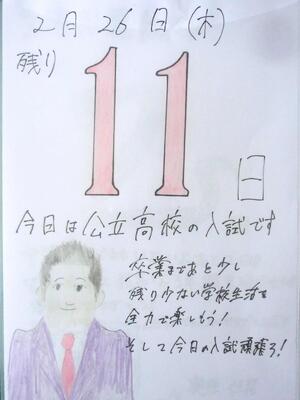 2月26日(木)
残り
11
日
今日は公立高校の入試です
卒業まであと少し
残り少ない学校生活を
全力で楽しもう!
そして今日の入試頑張ろ!